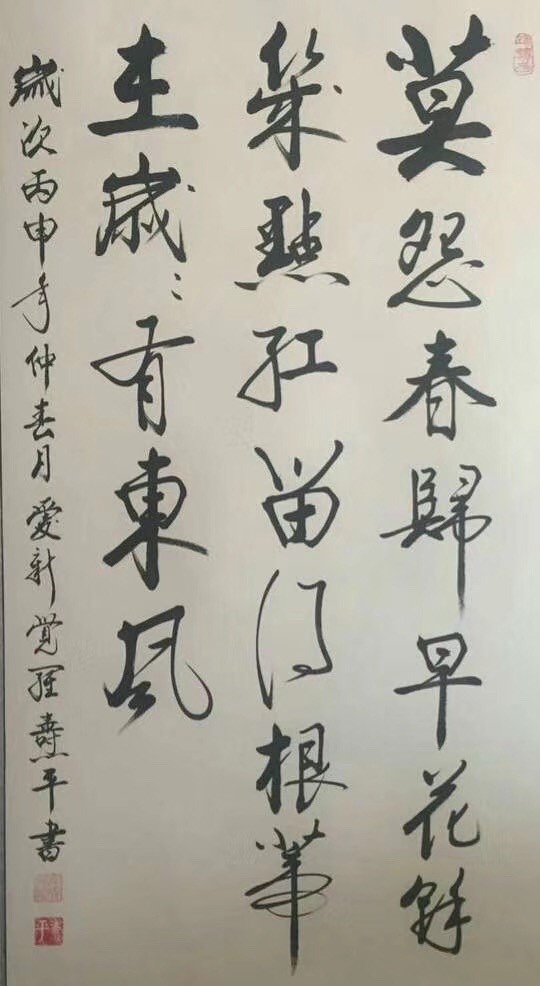 莫怨春歸早花餘
幾點紅留得根蒂
在歲〻有東風
歲次丙申年仲春月愛新覺羅燾平書